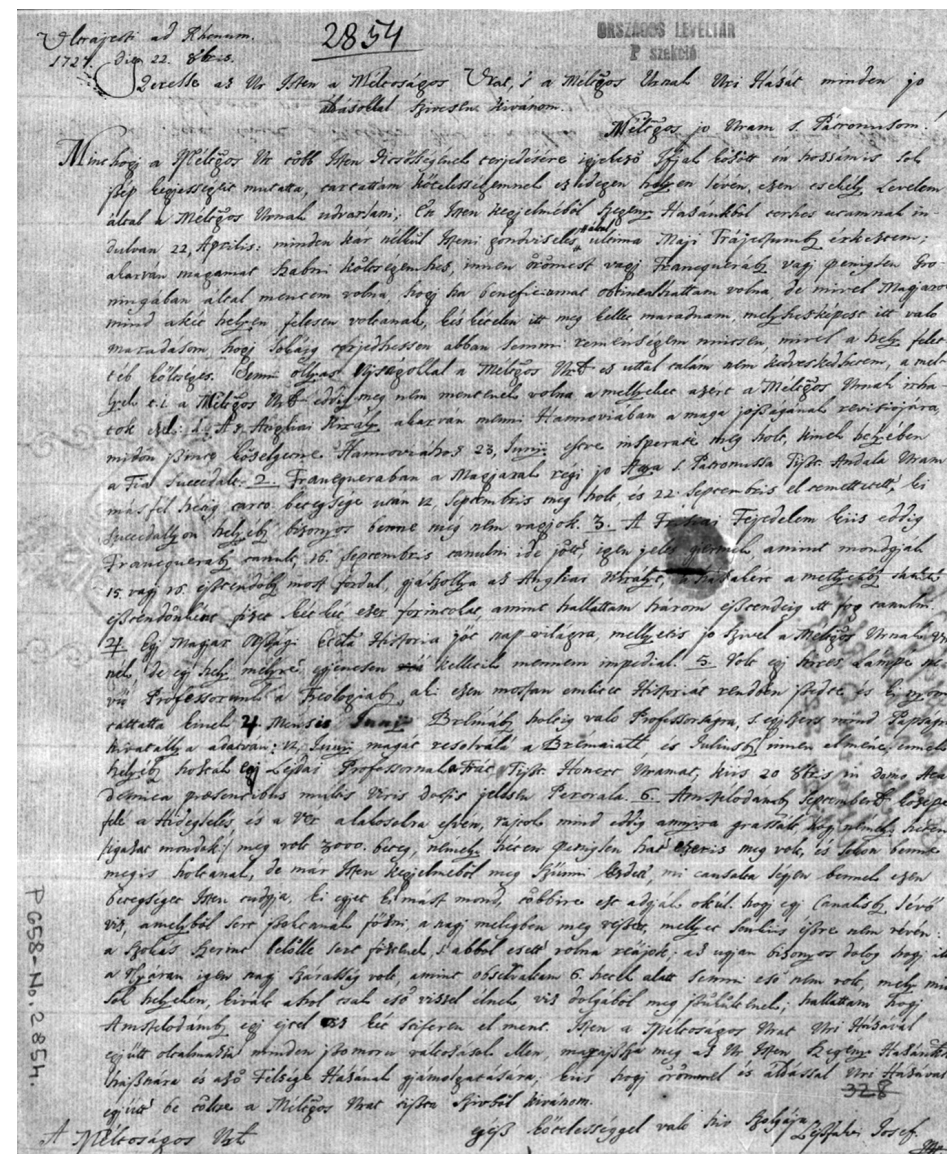 Ultrajecti ad Rhenum.
2854
ORSZÁGOS LEVÉLTÁR
P szekció
1727. Die 22. 8bris.
az Ur Isten a Méltoságos Urat, s a Méltgos Urnak Uri Házát minden jo
áldásokkal szivesen kivánom.
Méltgos jo Uram s Patronusom!
Mint hogy a Méltgos Ur több Isten Ditsősségének terjedésére igyekező Ifjak között én hozzám is sok
szép kegyességét mutatta, tartattam kötelességemnek ez idegen helyen lévén, ezen csekély Levelem
által a Méltgos Urnak udvarlani; Én Isten kegyelméből szegény Hazánkból terhes utamnak in-
dulván 22, Aprilis: minden kár nélkül Isteni gondviselés által ultima Maji Trájectumb érkeztem;
akarván magamat szabni költségemhez, innen örömest vagy Franequeráb vagy penigden Gro-
ningában által mentem volna, hogy ha beneficiumot obtineálhattam volna, de mivel Magyarok
mind a két helyen, felesen voltanak, kételen itt meg kellet maradnom, melyhezképest itt való
maradásom, hogy sokáig terjedhessen abban semmi reménségem nintsen, mivel a hely felet-
téb költséges. Semmi ollyas Ujságokkal a Méltgos Urt ez uttal talám nem kedveskedhetem, a mel-
lyek t. i. a Méltgos Urt eddig meg nem mentenek volna, a mellyeket azért a Méltgos Urnak irha-
tok ezek: 1. Az Angliai Király akarván menni Hannoviában a maga joszágának revisiojára,
midőn közelgetne Hannoviához 23, Junij estve insperate meg holt, kinek helyében
a Fia succedált. 2. Franequeraban a Magyarak régi jo Attya s Patronussa Tiszt. Andala Uram
másfél hétig tartó betegsége után 12 Septembris meg holt és 22 Septembris el temettetett, ki
succedállyon helyéb bizonyos benne meg nem vagyok. 3. A Frisiai Fejedelem kiis eddig
Franequeráb tanult, 16. Septembris tanulni ide jött, igen jeles gyermek, amint mondgyák
15 vagy 16. esztendőb most fordul, gyászollya az Angliai Királyt, a mellyért
esztendőnként fizet két két ezer forintokat, amint hallottam három esztendeig itt fog tanulni.
4. Egy Magyar Országi Ecclesia Historia jött nap világra, mellyetis jo szivel a Méltgos Urnak
de egy hely melyre egyenesen kelletik mennem impediál. 5. Volt egy hires Lampe ne-
vü Professorunk a Theologiáb, aki ezen mostan emlitett Historiát rendben szedte és ki nyom-
tattatta kinek 4 Mensis Junij Brémáb holtig való Professorságra, s egyszers mind Papságra
hivatallya adatván: 12, Junij magát resolválá a Brémaiakhoz és Juliusb innen elméne, ennek
helyéb hoztak egy Professornak Tiszt. Honert Uramat, kiis 20 8bris in domo Aca-
demica praesentibus multis Viris Doctis jelesen Perorála. 6. Amstelodamb Septembert közepe
felé a Hideglelés és a Vér alakosokra esvén, rajtok mind eddig annyira grassált, hogy némely héten
mondák meg volt 3000. beteg, némely héten penigden hat ezeris meg volt, és sokan benne
megis holtanak, de már Isten kegyelméből meg szünni kezdett, mi causája légyen ennek ezen
betegségét Isten tudgya, ki egyet ki mást mond, többire ezt adgyák okúl: hogy egy Canalisb lévő
viz, amelyből sert szoktanak főzni, a nagy melegben meg veszett, mellyet
a szokás szerint belőlle sert főztenek s abból esett volna reájok; az ugyan bizonyos dolog hogy itt
a Nyáron igen nagy szárasság volt, amint observáltam 6. hetek alatt semmi eső nem volt, mely mia
sok helyeken, kivált ahol csak eső vizzel élnek viz dolgából meg szükültenek; hallottam hogy
Amstelodámb egy ejtel viz két stiferen el ment. Isten a Méltoságos Urat Uri Házával
együtt oltalmazza minden szomoru változások ellen, meg az Ur Isten szegény Hazánknak
hasznára és aző Felsége Házának gyámolgatására, kiis hogy örömmel és áldással Uri Házával
együtt be töltse a Méltgos Urat tiszta szivből kivánom.
328
A Méltoságos Urt
egész kötelességgel való kis szolgája
Josef
P 658-No. 2854.